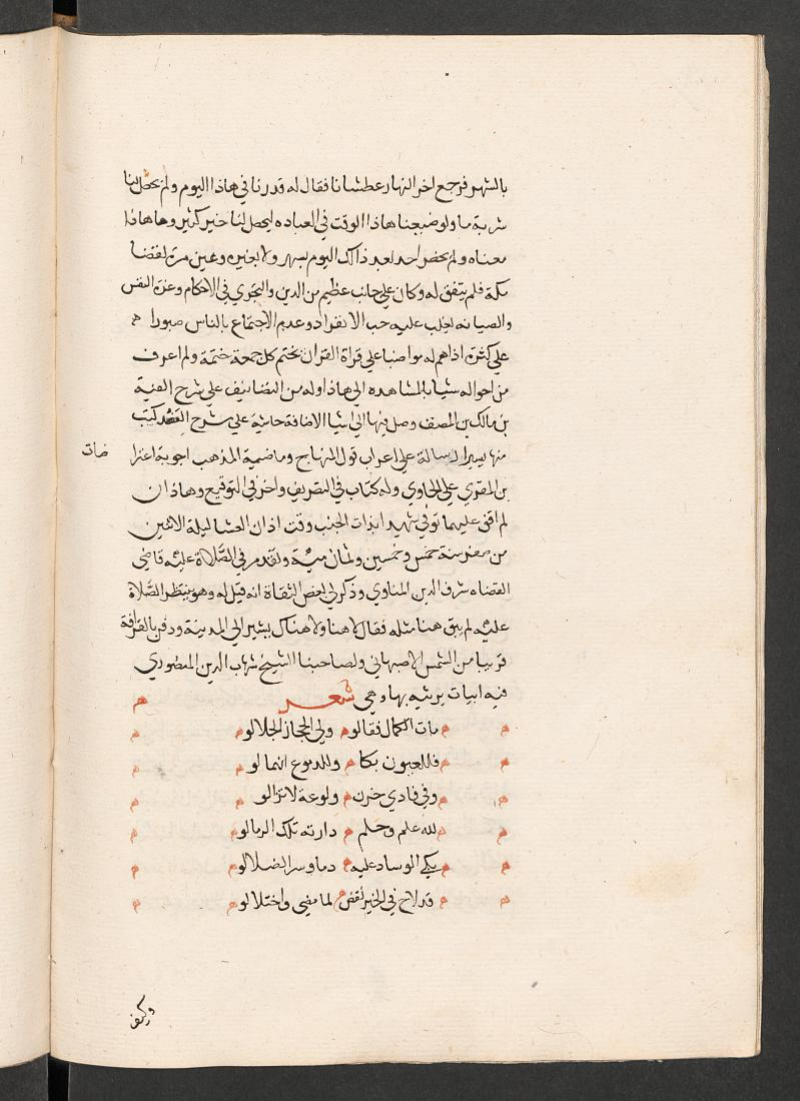 بالشهر فرجع اخر النهار عطشانا فقال له قدرنا في هاذا اليوم ولم يحصل لنا
شربة ما ولو ضيعنا هاذا الوقت في العباده ليحصل لنا خير كثير وها هاذا
معناه ولم يحضر احد بعد ذالك اليوم بسهر ولا بغيره وعين مرة لقضا
مكة فلم يتفق له وكان على جانب عظيم من الدين والتحري في الاحكام وعزة النفس
والصيانه يغلب عليه حب الانفراد وعدم الاجتماع بالناس صبورا
على كثرة اذاهم له مواضبا على قراة القران يختم كل جمعة ختمة ولم اعرف
من احواله شيا بالمشاهده الى هاذا وله من التصانيف على شرح الفية
بن مالك بن المصنف وصل فيها الى اثنا الاضافة حاشية على شرح العضد كتب
منها يسيرا رسالة على اعراب قول المنهاج وما ضمية المذهب اجوبة اعتراضات
بن المقري على الحاوي وله كتاب في التصريف واخر في التوقيع وهاذان
لم اقف عليهما توفي شهيدا بذات الجنب وقت اذان العشا ليلة الاثنين
من صفر سنة خمس وخمسين وثمان مية وتقدم في الصلاة عليه قاضي
القضاه شرف الدين المناوي وذكر لي بعض الثقاة انه قيل له وهو ينتظر الصلاة
عليه لم يبق هنا مثله فقال لا هنا ولا هناك يشير الى المدينة ودفن بالقرافة
قريبا من الشمس الاصبهاني ولصاحبنا الشيخ شهاب الدين المنصوري
فيه ابيات يرثيه بها وهي شعر
مات الكمال فقالو ولى الحجاز الجلالو
فللعيون بكا وللدموع انهمالو
وفي فادي حزن ولوعة لا تزالو
لله علم وحلم وارته تلك الرمالو
يبكي الوساد عليه دما وسر الضلالو
قد لاح في الخير نقض لما مضى واختلالو
وكيف